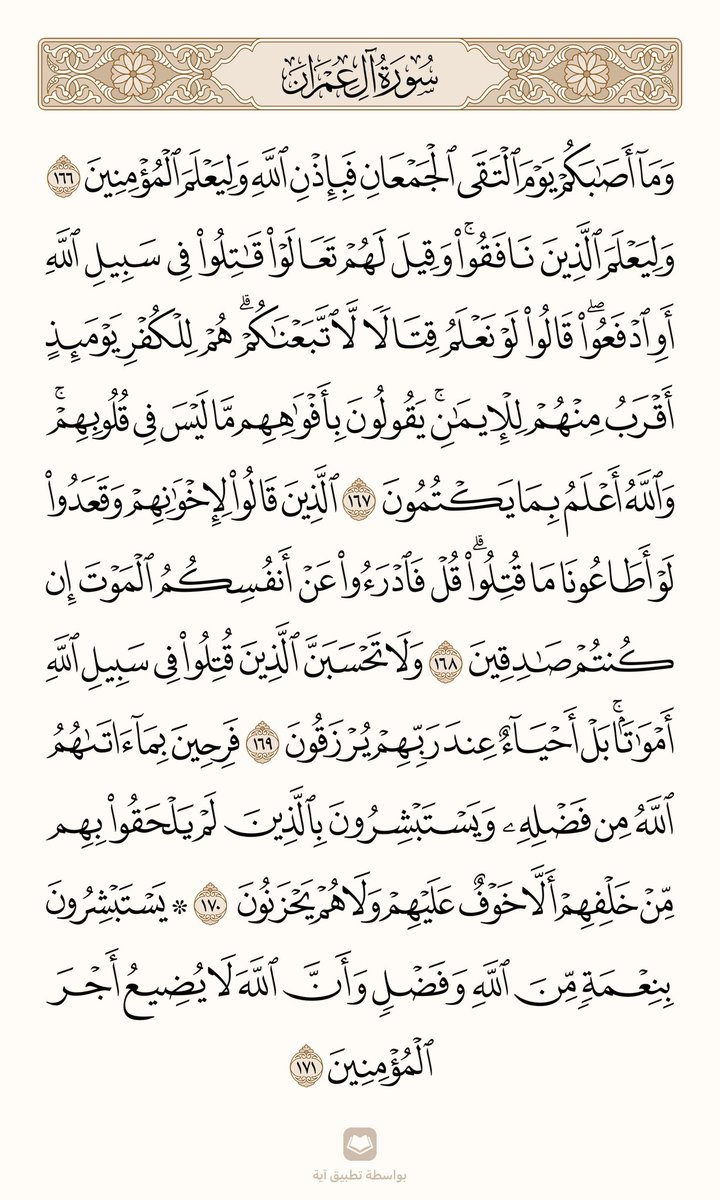 سُورَةُ آلِ عِمْرَان
وَمَآ أَصَٰبَكُمْ يَوْمَ ٱلْتَقَى ٱلْجَمْعَانِ فَبِإِذْنِ ٱللَّهِ وَلِيَعْلَمَ ٱلْمُؤْمِنِينَ ١٦٦
وَلِيَعْلَمَ ٱلَّذِينَ نَافَقُوا۟ۚ وَقِيلَ لَهُمْ تَعَالَوْا۟ قَٰتِلُوا۟ فِى سَبِيلِ ٱللَّهِ
أَوِ ٱدْفَعُوا۟ۖ قَالُوا۟ لَوْ نَعْلَمُ قِتَالًا لَّٱتَّبَعْنَٰكُمْۗ هُمْ لِلْكُفْرِ يَوْمَئِذٍ
أَقْرَبُ مِنْهُمْ لِلْإِيمَٰنِۚ يَقُولُونَ بِأَفْوَٰهِهِم مَّا لَيْسَ فِى قُلُوبِهِمْۚ
وَٱللَّهُ أَعْلَمُ بِمَا يَكْتُمُونَ ١٦٧ ٱلَّذِينَ قَالُوا۟ لِإِخْوَٰنِهِمْ وَقَعَدُوا۟
لَوْ أَطَاعُونَا مَا قُتِلُوا۟ۗ قُلْ فَٱدْرَءُوا۟ عَنْ أَنفُسِكُمُ ٱلْمَوْتَ إِن
كُنتُمْ صَٰدِقِينَ ١٦٨ وَلَا تَحْسَبَنَّ ٱلَّذِينَ قُتِلُوا۟ فِى سَبِيلِ ٱللَّهِ
أَمْوَٰتًۢاۚ بَلْ أَحْيَآءٌ عِندَ رَبِّهِمْ يُرْزَقُونَ ١٦٩ فَرِحِينَ بِمَآ ءَاتَىٰهُمُ
ٱللَّهُ مِن فَضْلِهِۦ وَيَسْتَبْشِرُونَ بِٱلَّذِينَ لَمْ يَلْحَقُوا۟ بِهِم
مِّنْ خَلْفِهِمْ أَلَّا خَوْفٌ عَلَيْهِمْ وَلَا هُمْ يَحْزَنُونَ ١٧٠ * يَسْتَبْشِرُونَ
بِنِعْمَةٍ مِّنَ ٱللَّهِ وَفَضْلٍ وَأَنَّ ٱللَّهَ لَا يُضِيعُ أَجْرَ
ٱلْمُؤْمِنِينَ ١٧١
بواسطة تطبيق آية